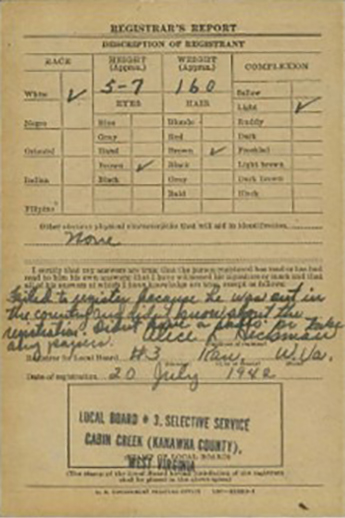 REGISTRAR'S REPORT
DESCRIPTION OF REGISTRANT
RACE HEIGHT (Approx.) WEIGHT (Approx.) COMPLEXION
White ✓ 5-7 160 Sallow
EYES HAIR Light ✓
Negro Blue Blonde Ruddy
Gray Red Dark
Oriental Hazel Brown ✓ Freckled
Brown ✓ Black Light brown
Indian Black Gray Dark brown
Bald Black
Filipino
Other obvious physical characteristics that will aid in identification
None
I certify that my answers are true; that the person registered has read or has had
read to him his own answers; that I have witnessed his signature or mark and that
all of his answers of which I have knowledge are true, except as follows:
Failed to register because he was out in
the country and didn't know about the
registration. Didn't have a photo or take
any papers. Alice Heckman
Registrar for Local Board #3 Kan. W. Va.
Date of registration 20 July 1942
LOCAL BOARD # 3, SELECTIVE SERVICE
CABIN CREEK (KANAWHA COUNTY),
WEST VIRGINIA
STAMP OF LOCAL BOARD
(The stamp of the Local Board having jurisdiction of the registrant
shall be placed in the above space)
U. S. GOVERNMENT PRINTING OFFICE